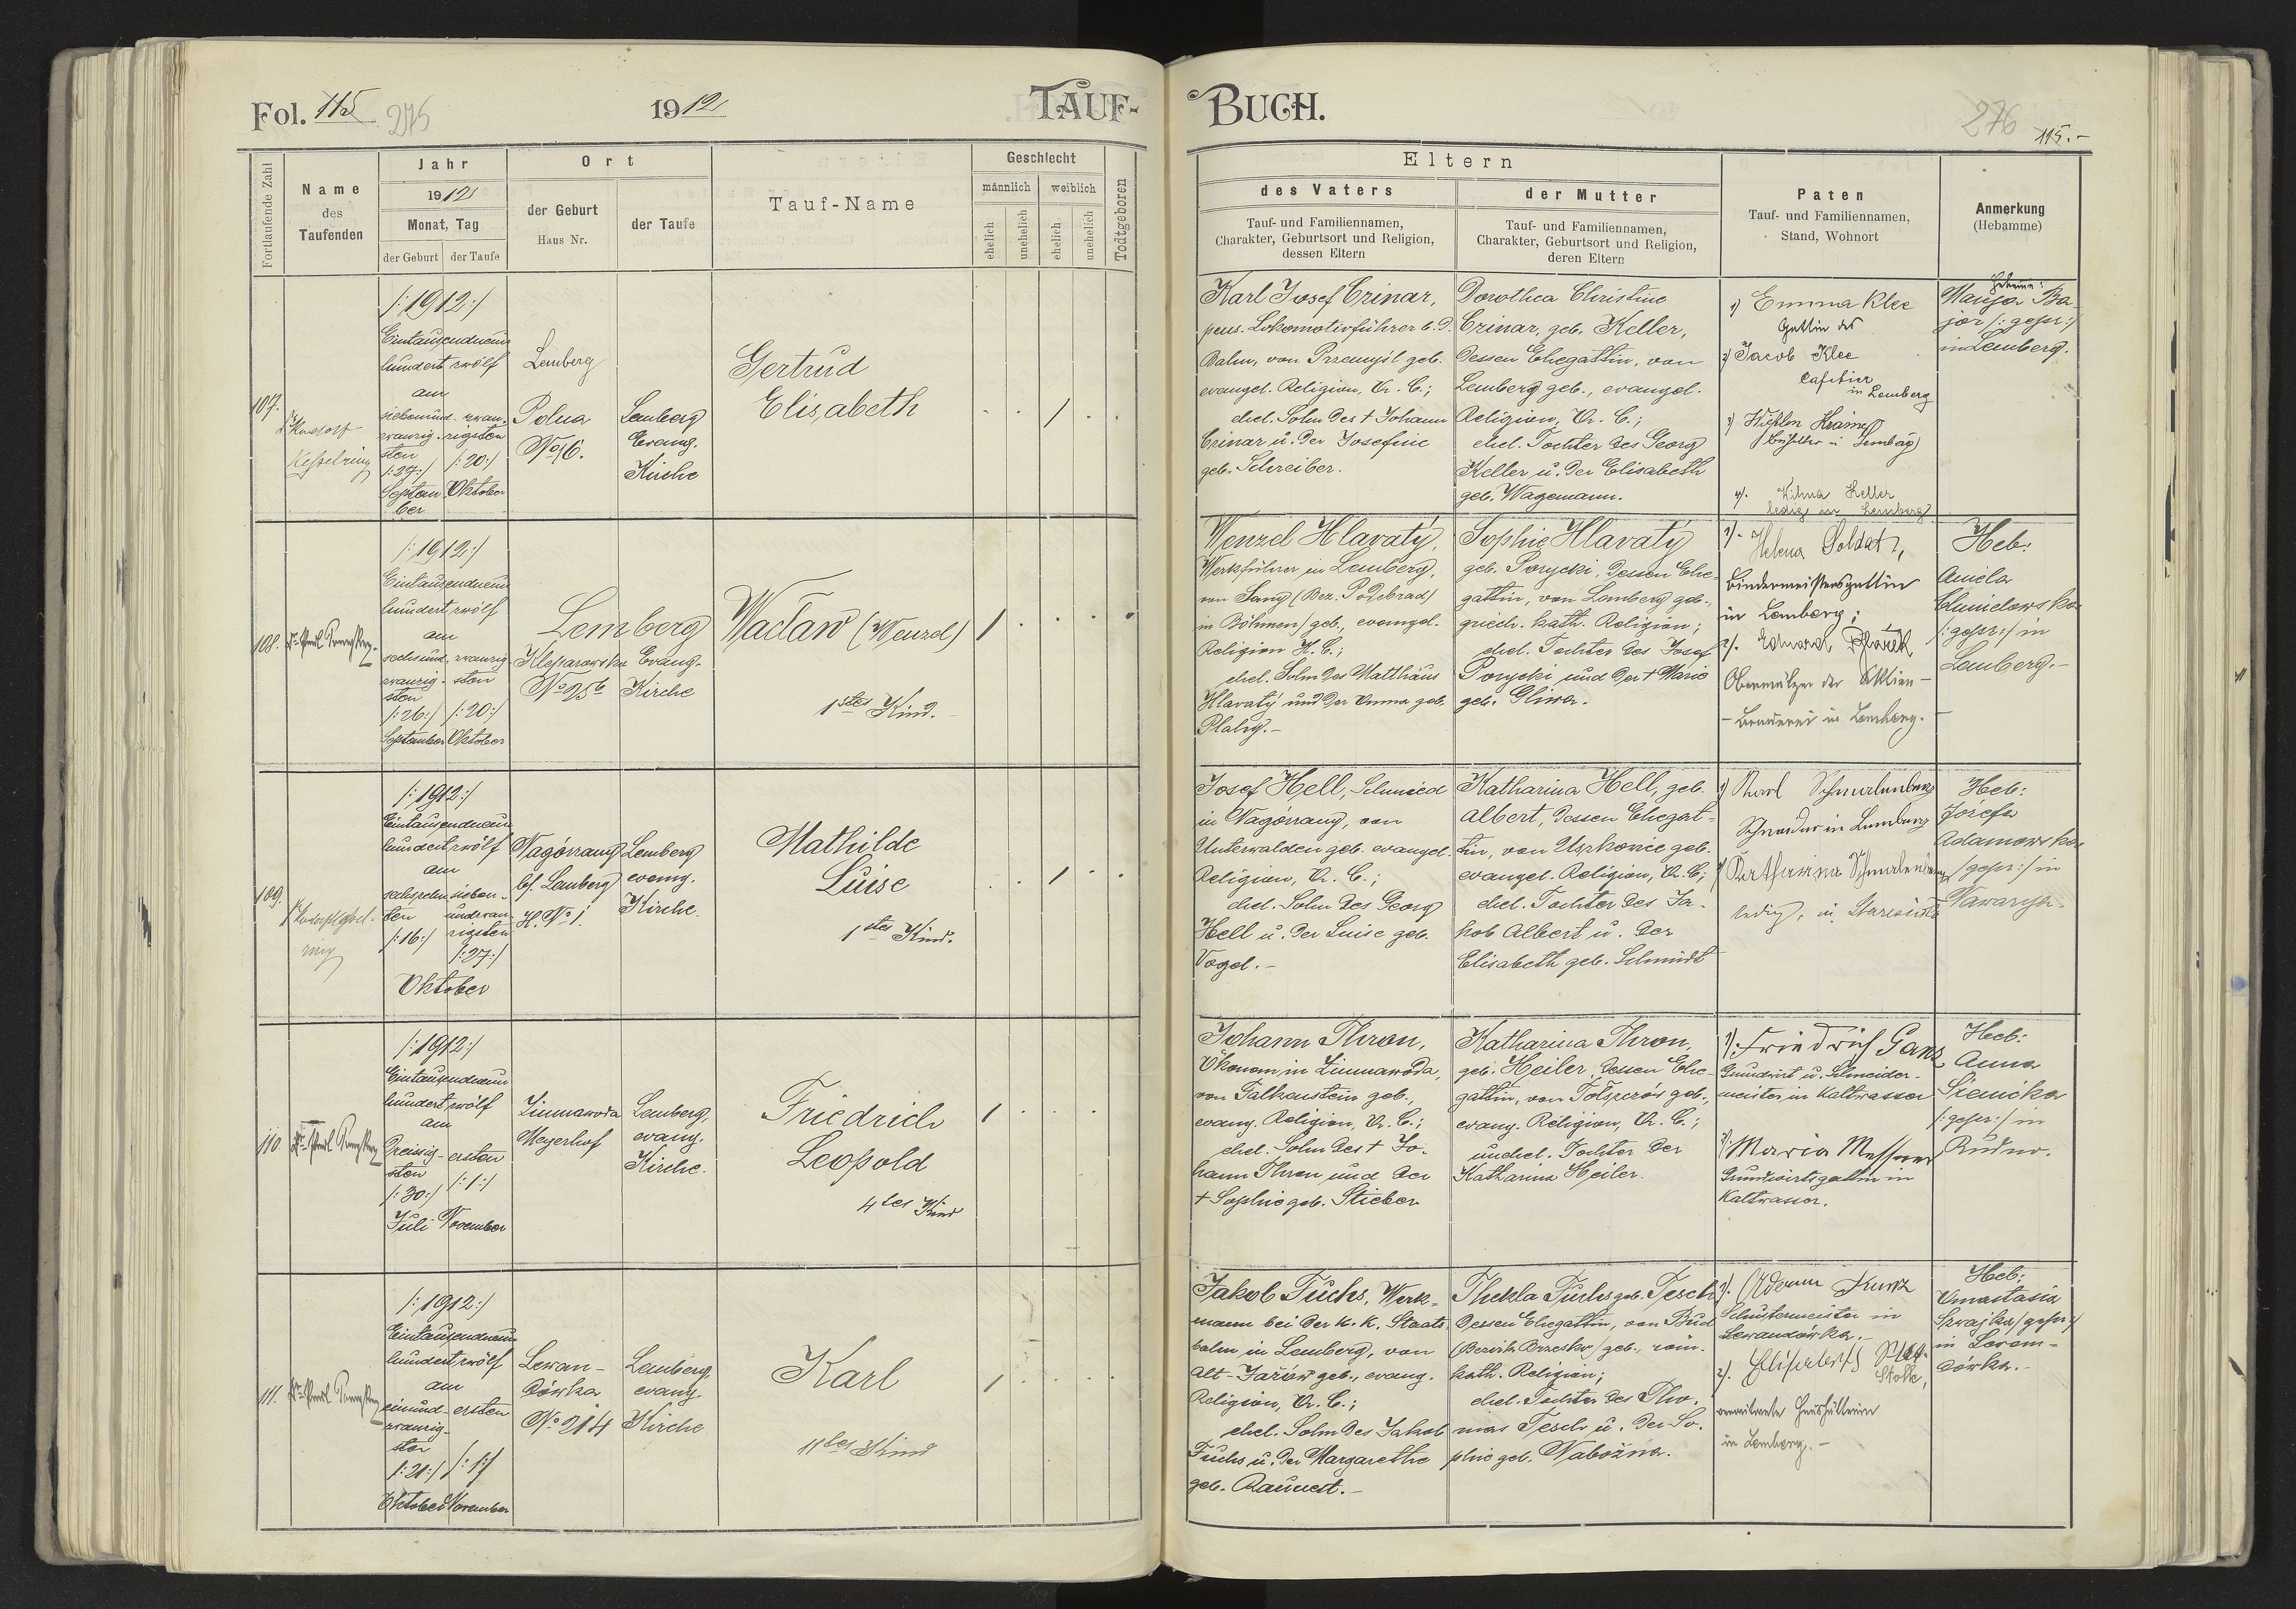 Fol. 115 275
1912
TAUF-
Fortlaufende Zahl
Name
des
Taufenden
Jahr
1912
Monat, Tag
der Geburt
der Taufe
Ort
der Geburt
Haus Nr.
der Taufe
Tauf-Name
Geschlecht
männlich
weiblich
ehelich
unehelich
ehelich
unehelich
Todtgeboren
107.
Kesselring
/:1912:/
Eintausendneun
hundert zwölf
am
siebenund- zwan-
zwanzig- zigsten
sten
/:27:/ /:20:/
Septem Oktober
ber
Lemberg
Polna
No 16.
Lemberg
Evang.
Kirche
Gertrud
Elisabeth
108.
/:1912:/
Eintausendneun
hundert zwölf
am
sechsund- zwanzig-
zwanzig- sten
sten
/:26:/ /:20:/
September Oktober
Lemberg
Kleparowska Evang.
No 25b Kirche
Wacław (Wenzel)
1stes Kind.
109.
/:1912:/
Eintausendneun
hundert zwölf
am
sechzehn- sieben-
ten undzwan-
/:16:/ zigsten
/:27:/
Oktober
Nagórzany
bf. Lemberg
H. No 1.
Lemberg
evang.
Kirche.
Mathilde
Luise
1stes Kind.
110.
/:1912:/
Eintausendneun
hundert zwölf
am
Dreissig- ersten
sten
/:30:/ /:1:/
Juli November
Zimnawoda
Meyerhof
Lemberg,
evang.
Kirche.
Friedrich
Leopold
4tes Kind
111.
/:1912:/
Eintausendneun
hundert zwölf
am
einund- ersten
zwanzig-
sten
/:21:/ /:1:/
Oktober November
Lewan-
dówka
No 214
Lemberg,
evang.
Kirche
Karl
11tes Kind
BUCH.
276
115.-
Eltern
des Vaters
Tauf- und Familiennamen,
Charakter, Geburtsort und Religion,
dessen Eltern
der Mutter
Tauf- und Familiennamen,
Charakter, Geburtsort und Religion,
deren Eltern
Paten
Tauf- und Familiennamen,
Stand, Wohnort
Anmerkung
(Hebamme)
Karl Josef Crinar,
pens. Lokomotivführer d. D.
Bahn, von Przemysl geb.
evangel. Religion, A. C.;
ehel. Sohn des † Johann
Crinar u. der Josefine
geb. Schreiber.
Dorothea Christine
Crinar, geb. Keller,
dessen Ehegattin, von
Lemberg geb., evangel.
Religion, A. C.;
ehel. Tochter des Georg
Keller u. der Elisabeth
geb. Wagemann.
1) Emma Klee
Gattin des
2) Jacob Klee
Cafetier
in Lemberg
4). Keller
ledig in Lemberg
Ba-
jor /:gepr:/
in Lemberg.
Wenzel Hlavatý,
Werkführer in Lemberg,
von Sany (Bez. Podebrad)
in Böhmen) geb., evangel.
Religion H. C.;
ehel. Sohn des Matthäus
Hlavatý und der Anna geb.
Sophie Hlavatý
geb. Porycki, dessen Ehe-
gattin, von Lemberg geb.,
griech. kath. Religion;
ehel. Tochter des Josef
Porycki und der † Marie
geb. Gliwa.
1).- Helena Soldat,
Bindermeistersgattin
in Lemberg;
2). Eduard
Obermälzer der Aktien-
- Brauerei in Lemberg. -
Heb:
Aniela
/:gepr:/ in
Lemberg.-
Josef Hell, Schmied
in Nagórzany, von
Unterwalden geb. evangel.
Religion, A. C.;
ehel. Sohn des Georg
Hell u. der Luise geb.
Vogel.-
Katharina Hell, geb.
Albert, dessen Ehegat-
tin, von Uszkowice geb.
evangel. Religion, A. C.;
ehel. Tochter des Ja-
kob Albert u. der
Elisabeth geb. Schmidt
1) Karl Schmalenberg
in Lemberg
2) Katharina Schmalenberg
ledig, in
Heb:
Józefa
Adamowska
/gepr:/ in
Nawarya.
Johann Thron,
Ökonom in Zimnawoda,
von Falkenstein geb.,
evang. Religion, A. C.;
ehel. Sohn des † Jo-
hann Thron und der
† Sophie geb. Stieber
Katharina Thron,
geb. Heiler, dessen Ehe-
gattin, von Tolszczów geb.,
evang. Religion, A. C.;
unehel. Tochter der
Katharina Heiler.
1) Friedrich Ganz
Grundwirt u. Schneider-
meister in Kaltwasser
2) Maria Messner
Grundwirtsgattin in
Kaltwasser.
Heb:
Anna
Sienicka
/:gepr:/ in
Rudno.
Jakob Fuchs, Werk-
mann bei der k. k. Staats-
bahn in Lemberg, von
Alt-Jażów geb., evang.
Religion, A. C.;
ehel. Sohn des Jakob
Fuchs u. der Margarethe
geb. Rauuert.-
Thekla Fuchs geb. Tesch
dessen Ehegattin, von Bud
(Bezirk Brzesko) geb., röm.
kath. Religion;
ehel. Tochter des Tho-
mas Tesch u. der So-
phie geb. Nabożna.
1). Adam Kunz
Schustermeister in
Lewandówka.-
2). Elisabeth
verwitwete
in Lemberg.-
Heb:
Anastasia
/gepr:/
in Lewan-
dówka.-